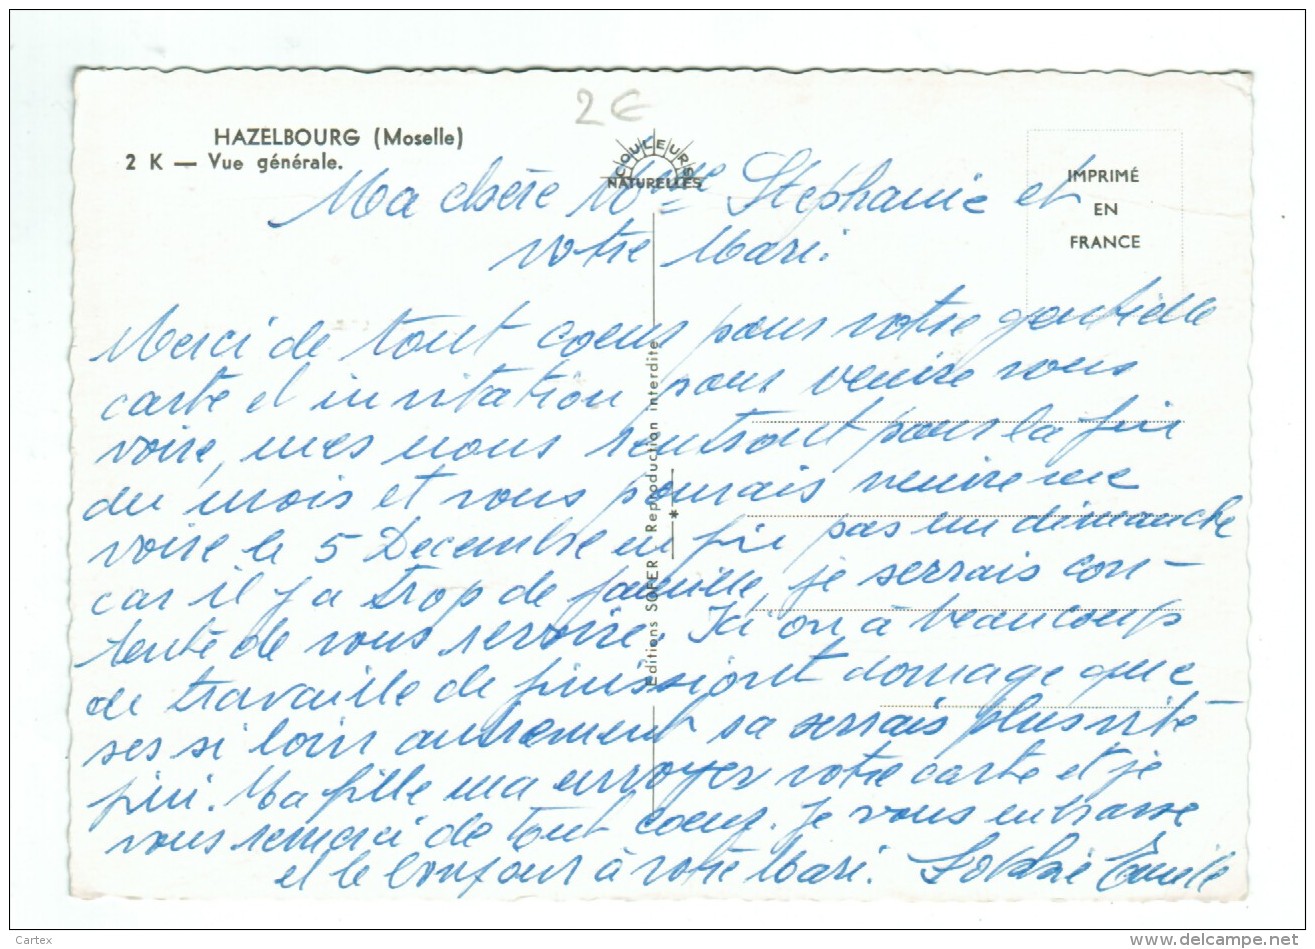 2 €
HAZELBOURG (Moselle)
2 K — Vue générale.
COULEURS
NATURELLES
IMPRIMÉ
EN
FRANCE
Ma chère Mme Stephanie et
votre Mari.
Merci de tout coeur pour votre gentielle
carte et invitation pour venire vous
voire, mes nous rentront pour la fin
du mois et vous pourais venire me
voire le 5 Decembre enfin pas un dimanche
car il y a trop de famille, je serrais con-
tente de vous revoire. Ici on à beaucoup
de travaille de finission domage que
ses si loin autrement sa serrais plus vite
fini. Ma fille ma envoyer votre carte et je
vous remerci de tout coeur. Je vous embrasse
et le bonjour à votre Mari.
Editions SOFER — Reproduction interdite
Cartex
www.delcampe.net